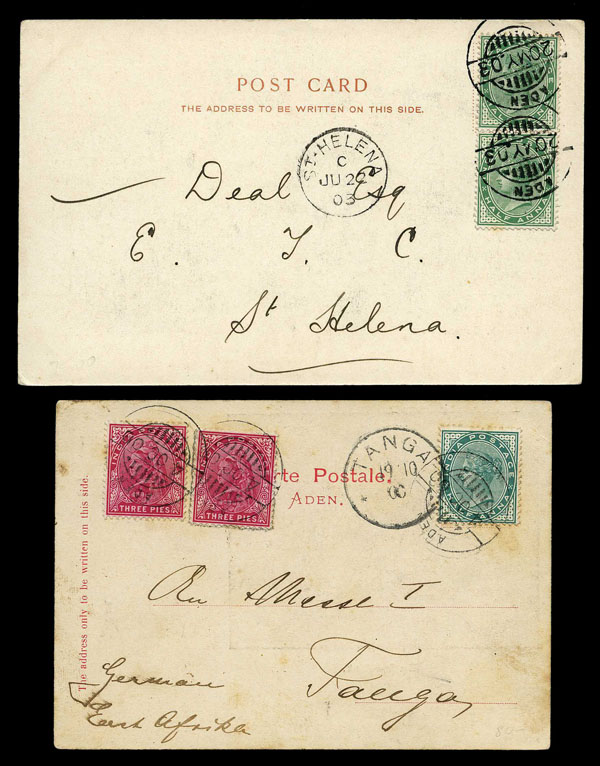 POST CARD
THE ADDRESS TO BE WRITTEN ON THIS SIDE.
ADEN
20 MY. 03
ADEN
20 MY. 03
HALF ANNA
ST. HELENA
C
JU 22
03
Deal Esq
E. T. C.
St Helena.
THREE PIES
THREE PIES
TANGA
19 10
00
INDIA POSTAGE
ADEN
Carte Postale.
ADEN.
The address only to be written on this side.
An Messe I
Tanga
German
East Afrika